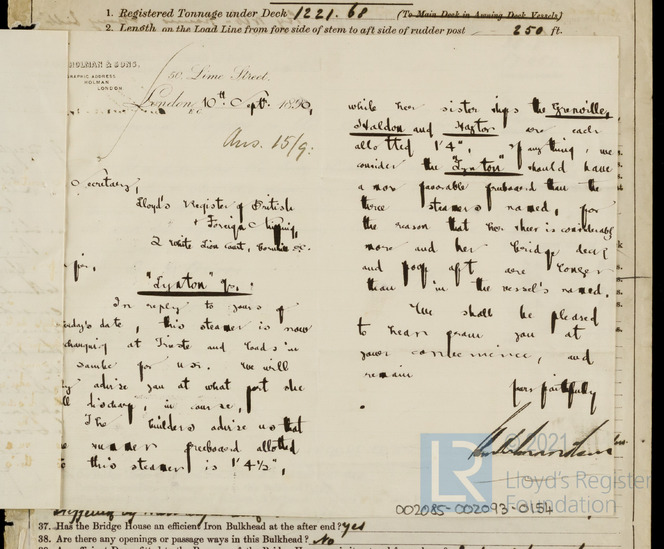 1. Registered Tonnage under Deck 1221.68 (To Main Deck in Awning Deck Vessels)
2. Length on the Load Line from fore side of stem to aft side of rudder post 250 ft.
HOLMAN & SONS.
GRAPHIC ADDRESS
HOLMAN
LONDON
50, Lime Street,
London, 10th Sept. 1890,
Ans. 15/9.
ecretary,
Lloyd's Register of British
& Foreign Shipping,
2 White Lion Court, Cornhill E.C.
"Lynton" f.b.
In reply to yours of
day's date, this steamer is now
discharging at Trieste and loads in
for U.K. We will
advise you at what port she
discharg, in course,
The builders advise us that
summer freeboard allotted
this steamer is 1'4½",
while her sister ships the Grenville,
Haldon and Haytor were each
allotted 1'4". If anything, we
consider the "Lynton" should have
a more favorable freeboard than the
three steamers named, for
the reason that her sheer is considerably
more and her bridge deck
and poop aft are longer
than in the vessels named.
We shall be pleased
to hear from you at
your convenience, and
remain
yours faithfully
© 2021
LR
Lloyd's Register
Foundation
002085-002093-0154
37. Has the Bridge House an efficient Iron Bulkhead at the after end? Yes
38. Are there any openings or passage ways in this Bulkhead? No